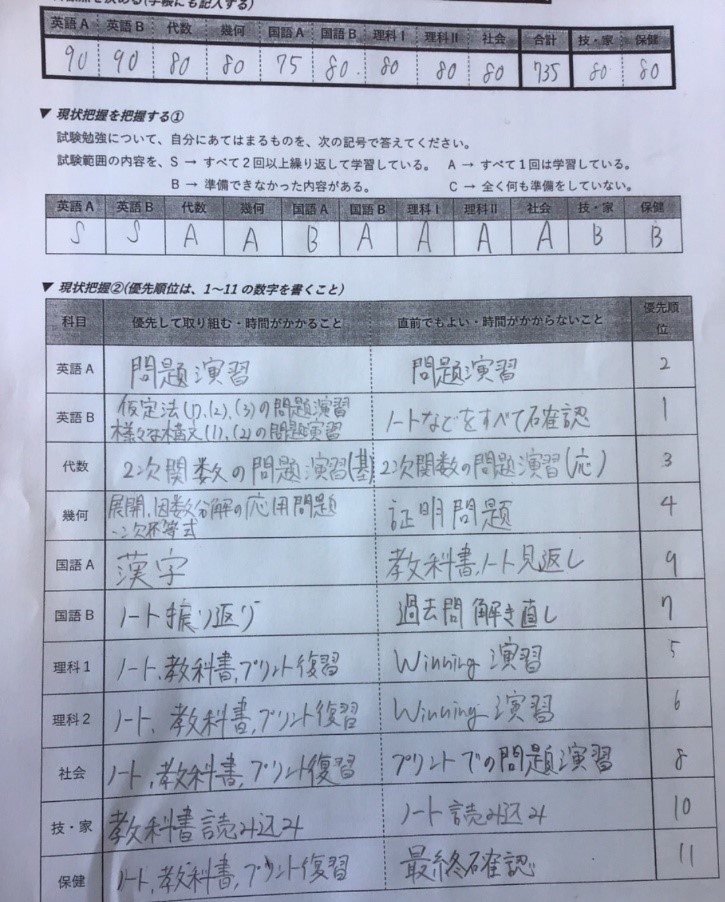 (手帳にも記入する)
英語A 英語B 代数 幾何 国語A 国語B 理科I 理科II 社会 合計 技・家 保健
90 90 80 80 75 80. 80 80 80 735 80 80
▼ 現状把握を把握する①
試験勉強について、自分にあてはまるものを、次の記号で答えてください。
試験範囲の内容を、S → すべて2回以上繰り返して学習している。 A → すべて1回は学習している。
B → 準備できなかった内容がある。 C → 全く何も準備をしていない。
英語A 英語B 代数 幾何 国語A 国語B 理科I 理科II 社会 技・家 保健
S S A A B A A A A B B
▼ 現状把握②(優先順位は、1~11の数字を書くこと)
科目 優先して取り組む・時間がかかること 直前でもよい・時間がかからないこと 優先順位
英語A 問題演習 問題演習 2
英語B 仮定法(1),(2),(3)の問題演習 ノートなどをすべて確認 1
様々な構文(1),(2)の問題演習
代数 2次関数の問題演習(基) 2次関数の問題演習(応) 3
幾何 展開,因数分解の応用問題 証明問題 4
一次不等式
国語A 漢字 教科書,ノート見返し 9
国語B ノート振り返り 過去問解き直し 7
理科1 ノート,教科書,プリント復習 Winning 演習 5
理科2 ノート,教科書,プリント復習 Winning 演習 6
社会 ノート,教科書,プリント復習 プリントでの問題演習 8
技・家 教科書読み込み ノート読み込み 10
保健 ノート,教科書,プリント復習 最終確認 11